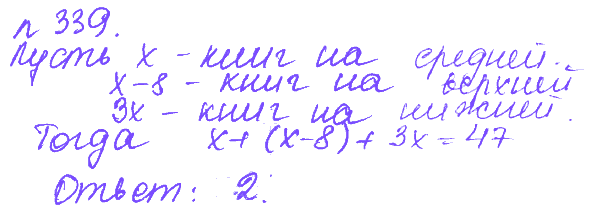 п 339.
Пусть х - книг на средней.
х-8 - книг на верхней
3х - книг на нижней.
Тогда х+(х-8)+3х=47
Ответ: 2.